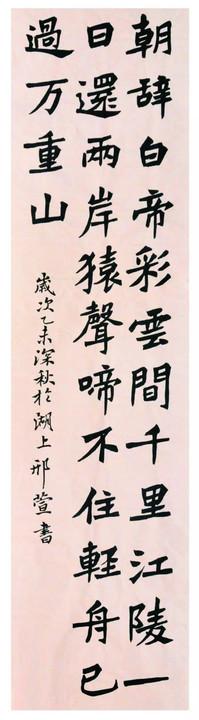 朝辞白帝彩雲間千里江陵一
日還兩岸猿聲啼不住輕舟已
過万重山
歲次乙未深秋於湖上邢萱書